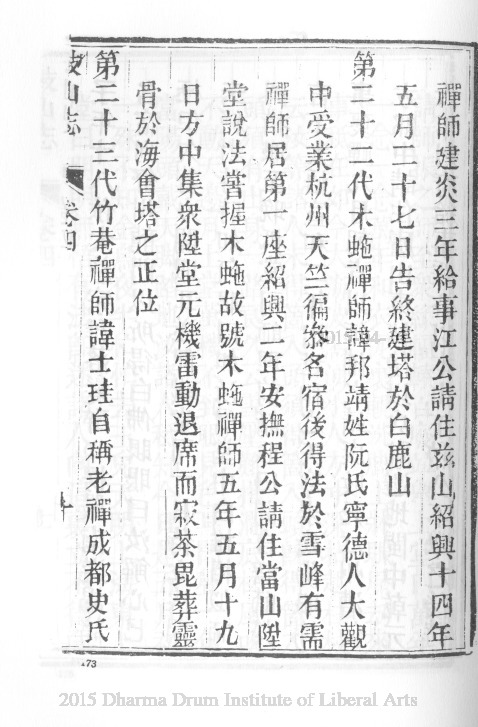 禪師建炎三年給事江公請住茲山紹興十四年
五月二十七日告終建塔於白鹿山
第二十二代木蛇禪師諱邦靖姓阮氏寧德人大觀
中受業杭州天竺徧叅名宿後得法於雪峰有需
禪師居第一座紹興二年安撫程公請住當山陞
堂說法甞握木蛇故號木蛇禪師五年五月十九
日方中集衆陞堂元機雷動退席而寂茶毘葬靈
骨於海會塔之正位
第二十三代竹菴禪師諱士珪自稱老禪成都史氏
鼓山志 卷四 十
173
2015 Dharma Drum Institute of Liberal Arts